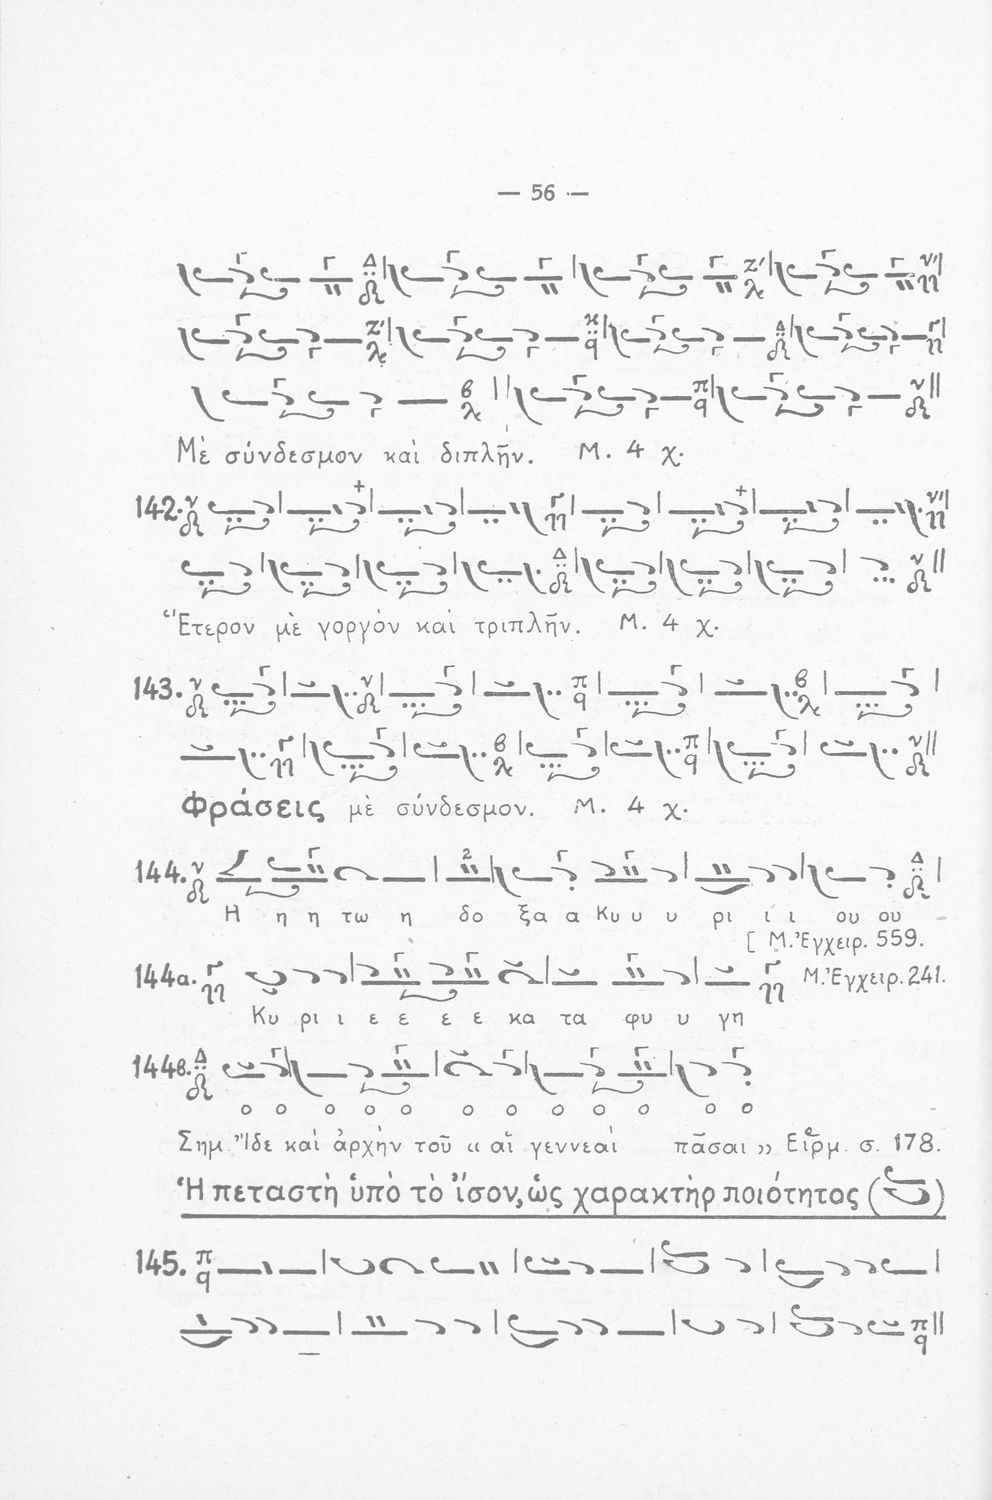 — 56 —
Μὲ σύνδεσμον καὶ διπλῆν. Μ. 4 χ.
142.
Ἕτερον μὲ γοργὸν καὶ τριπλῆν. Μ. 4 χ.
143.
Φράσεις μὲ σύνδεσμον. Μ. 4 χ.
144.
Η η η τω η δο ξα α Κυ υ υ ρι ι ι ου ου
[ Μ. Ἐγχειρ. 559.
144α. Μ. Ἐγχειρ. 241.
Κυ ρι ι ε ε ε ε κα τα φυ υ γη
144β.
ο ο ο ο ο ο ο ο ο ο ο ο
Σημ. Ἴδε καὶ ἀρχὴν τοῦ « αἱ γεννεαὶ πᾶσαι » Εἱρμ. σ. 178.
Ἡ πεταστὴ ὑπὸ τὸ ἴσον, ὡς χαρακτὴρ ποιότητος ( )
145.